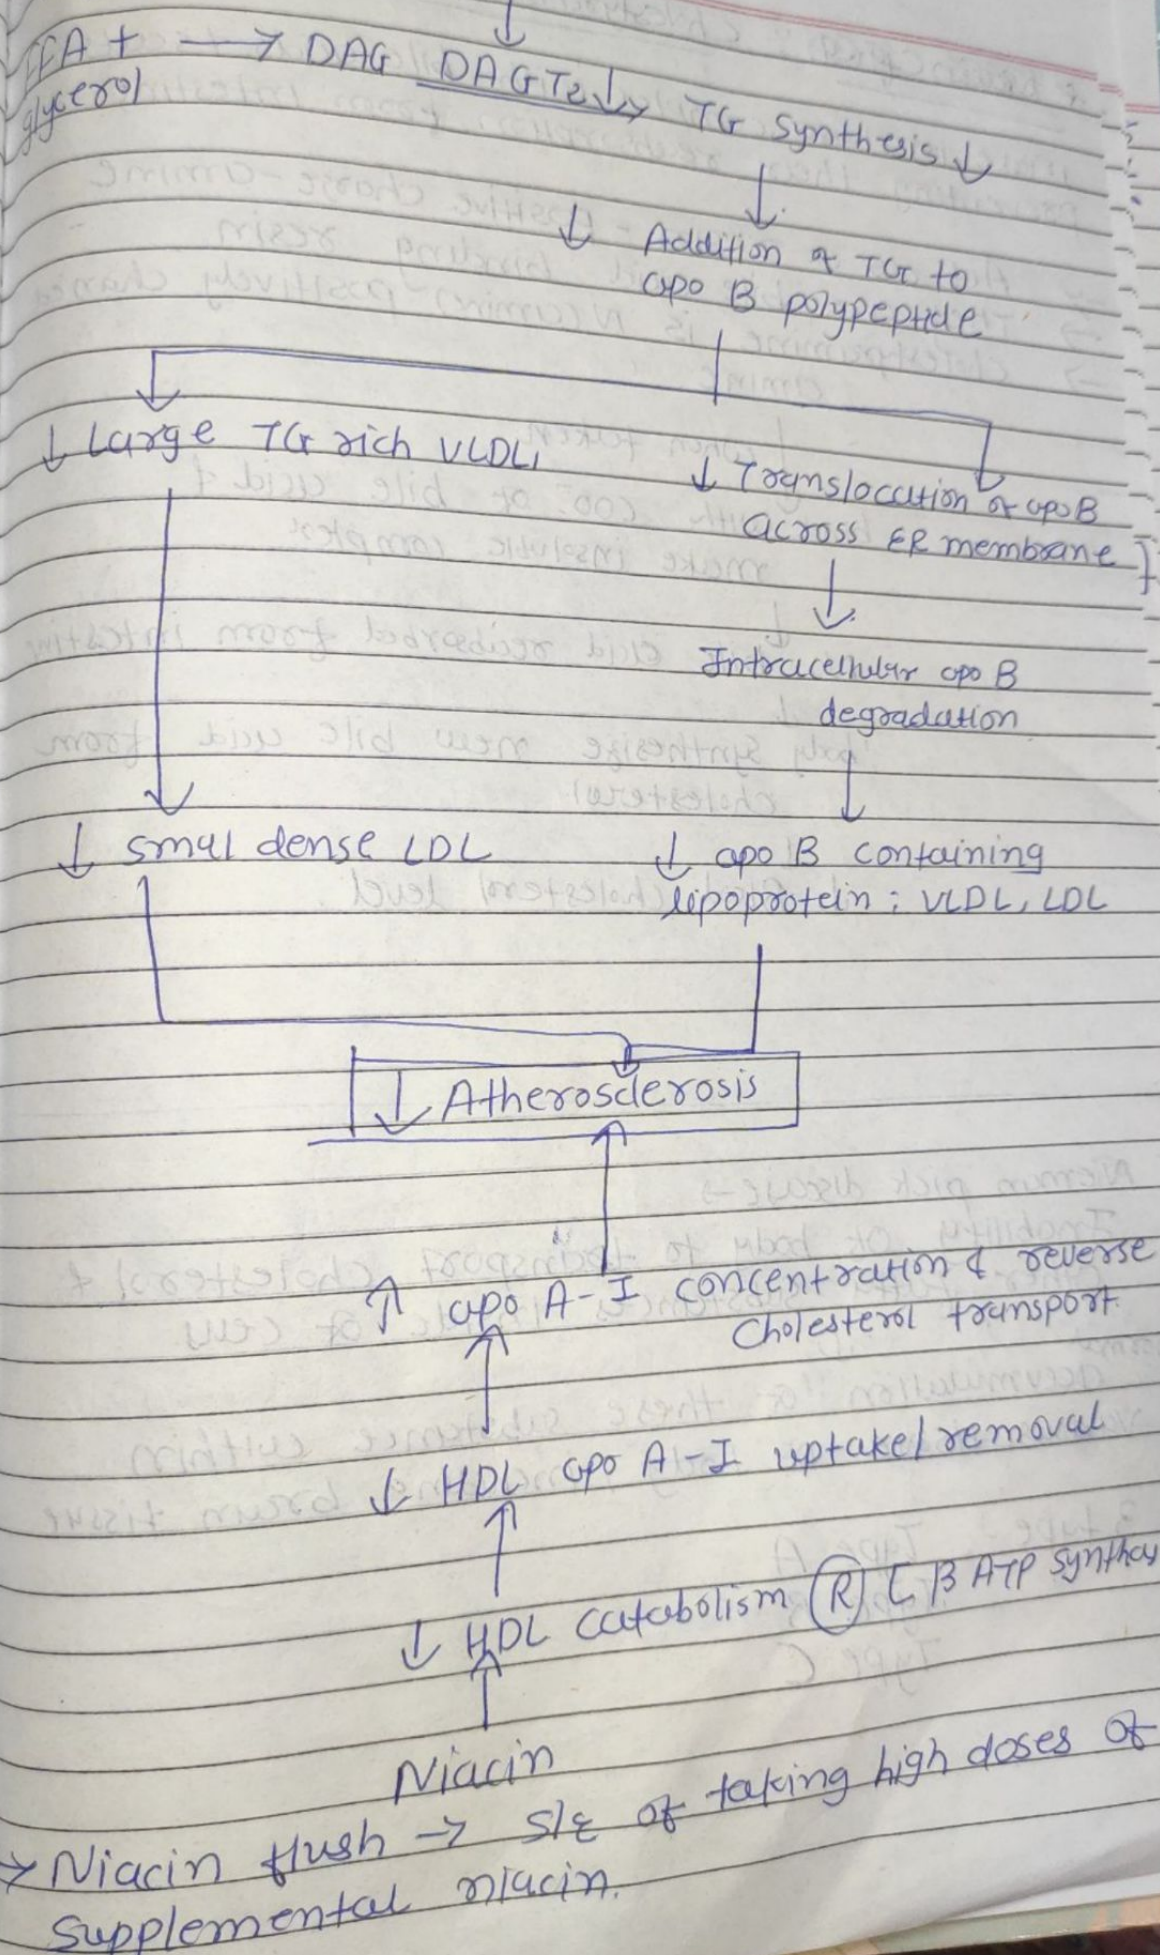 FFA + → DAG DAGT2↓→ TG synthesis ↓
glycerol
↓ Addition of TG to
apo B polypeptide
↓ Large TG rich VLDL,
↓ Translocation of apo B
across ER membrane]
Intracellular apo B
degradation
↓ small dense LDL
↓ apo B containing
lipoprotein : VLDL, LDL
↓ Atherosclerosis
↑ apo A-I concentration & reverse
cholesterol transport.
↓ HDL apo A-I uptake/removal
↓ HDL catabolism (R) [ β ATP synthas
Niacin
→ Niacin flush → S/E of taking high doses of
supplemental niacin.